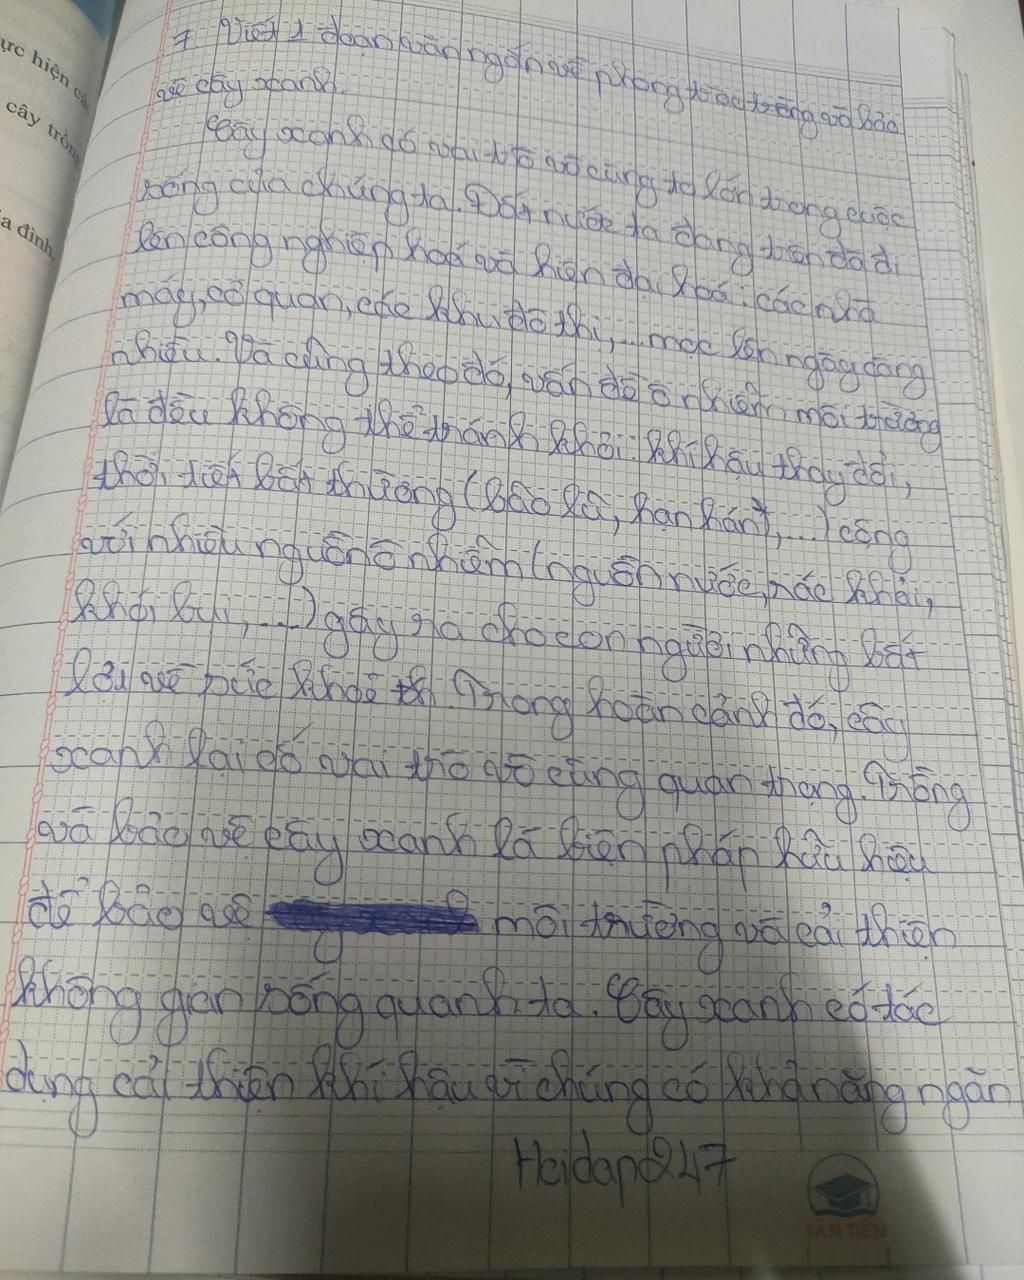 ực hiện các
cây trồng
a đình.
7. Viết 1 đoạn văn ngắn về phong trào trồng và bảo
vệ cây xanh.
Cây xanh có vai trò vô cùng to lớn trong cuộc
sống của chúng ta. Đất nước ta đang trên đà đi
lên công nghiệp hoá và hiện đại hoá. các nhà
máy, cơ quan, các khu đô thị,... mọc lên ngày càng
nhiều. Và cũng theo đó, vấn đề ô nhiễm môi trường
là đều không thể tránh khỏi. khí hậu thay đổi,
thời tiết bất thường (bão lũ, hạn hán,...) cộng
với nhiều nguồn ô nhiễm (nguồn nước, rác thải,
khói bụi,...) gây ra cho con người những bất
lợi về sức khoẻ th. Trong hoàn cảnh đó, cây
xanh lại có vai trò vô cùng quan trọng. Trồng
và bảo vệ cây xanh là biện pháp hữu hiệu
để bảo vệ môi trường và cải thiện
không gian sống quanh ta. Cây xanh có tác
dụng cải thiện khí hậu vì chúng có khả năng ngăn
Hoidap247
TÂN TIẾN